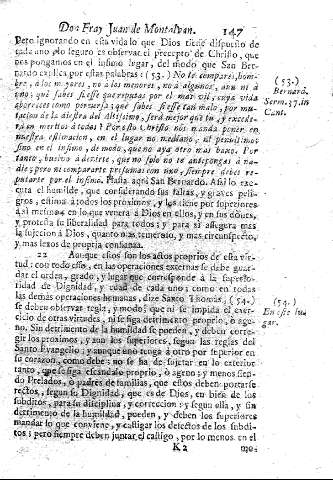 Don Fray Juan de Montalvan. 147
Pero ignorando en esta vida lo que Dios tiene dispuesto de
cada uno, lo seguro es observar el precepto de Christo, que
nos pongamos en el infimo lugar, del modo que San Ber-
nardo explica por estas palabras: (53.) No te compares, hom-
bre, à los mayores, no à los menores, no à algunos, aun ni à
uno; què sabes si esse que
apareces como perversa; què sabes si esse tan malo, por mu-
tacion de la diestra del Altissimo, serà mejor que tu, y excede-
rà en meritos à todos? Por esto Christo nos manda poner en
nuestra estimacion, en el lugar no mediano, ni penultimo;
sino en el infimo, de modo, que no aya otro mas baxo. Por
tanto, buelvo à dezirte, que no solo no te antepongas à na-
die; pero ni compararte presumas con uno, siempre debes re-
putarte por el infimo. Hasta aqui San Bernardo. Assi lo exe-
cuta el humilde, que considerando sus faltas, y graves peli-
gros, estima à todos los proximos, y los tiene por superiores
à sì mesmo en lo que venera à Dios en ellos, y en sus dones,
y protesta su liberalidad para todos; y para sì assegura mas
la sujecion à Dios, quanto mas temeroso, y mas circunspecto,
y mas lexos de propria confianza.
22 Aunque estos son los actos proprios de esta vir-
tud; con todo esso, en las operaciones externas se debe guar-
dar el orden, grado, y lugar que corresponde à la superio-
ridad de Dignidad, y edad de cada uno; como en todas
las demàs operaciones humanas, dize Santo Thomàs, (54.)
se deben observar regla, y modo; que ni se impida el exer-
cicio de otras virtudes, ni se siga detrimento proprio, ò age-
no. Sin detrimento de la humildad se pueden, y deben corre-
gir los proximos, y aun los superiores, segun las reglas del
Santo Evangelio; y aunque uno tenga à otro por superior en
su corazon, como debe; no se ha de sujetar en lo exterior
tanto, que se siga escandalo proprio, ò ageno; y menos sien-
do Prelados, ò padres de familias, que estos deben portarse
rectos, segun su Dignidad, que es de Dios, en bien de los
subditos, para su disciplina, y correccion: y segun ella, y sin
detrimento de la humildad, pueden, y deben los superiores
mandar lo que conviene, y castigar los defectos de los subdi-
tos; pero siempre deben juntar el castigo, por lo menos en el
K 2 mo-
(53.)
Bernard.
Serm. 37. in
Cant.
(54.)
En este lu-
gar.